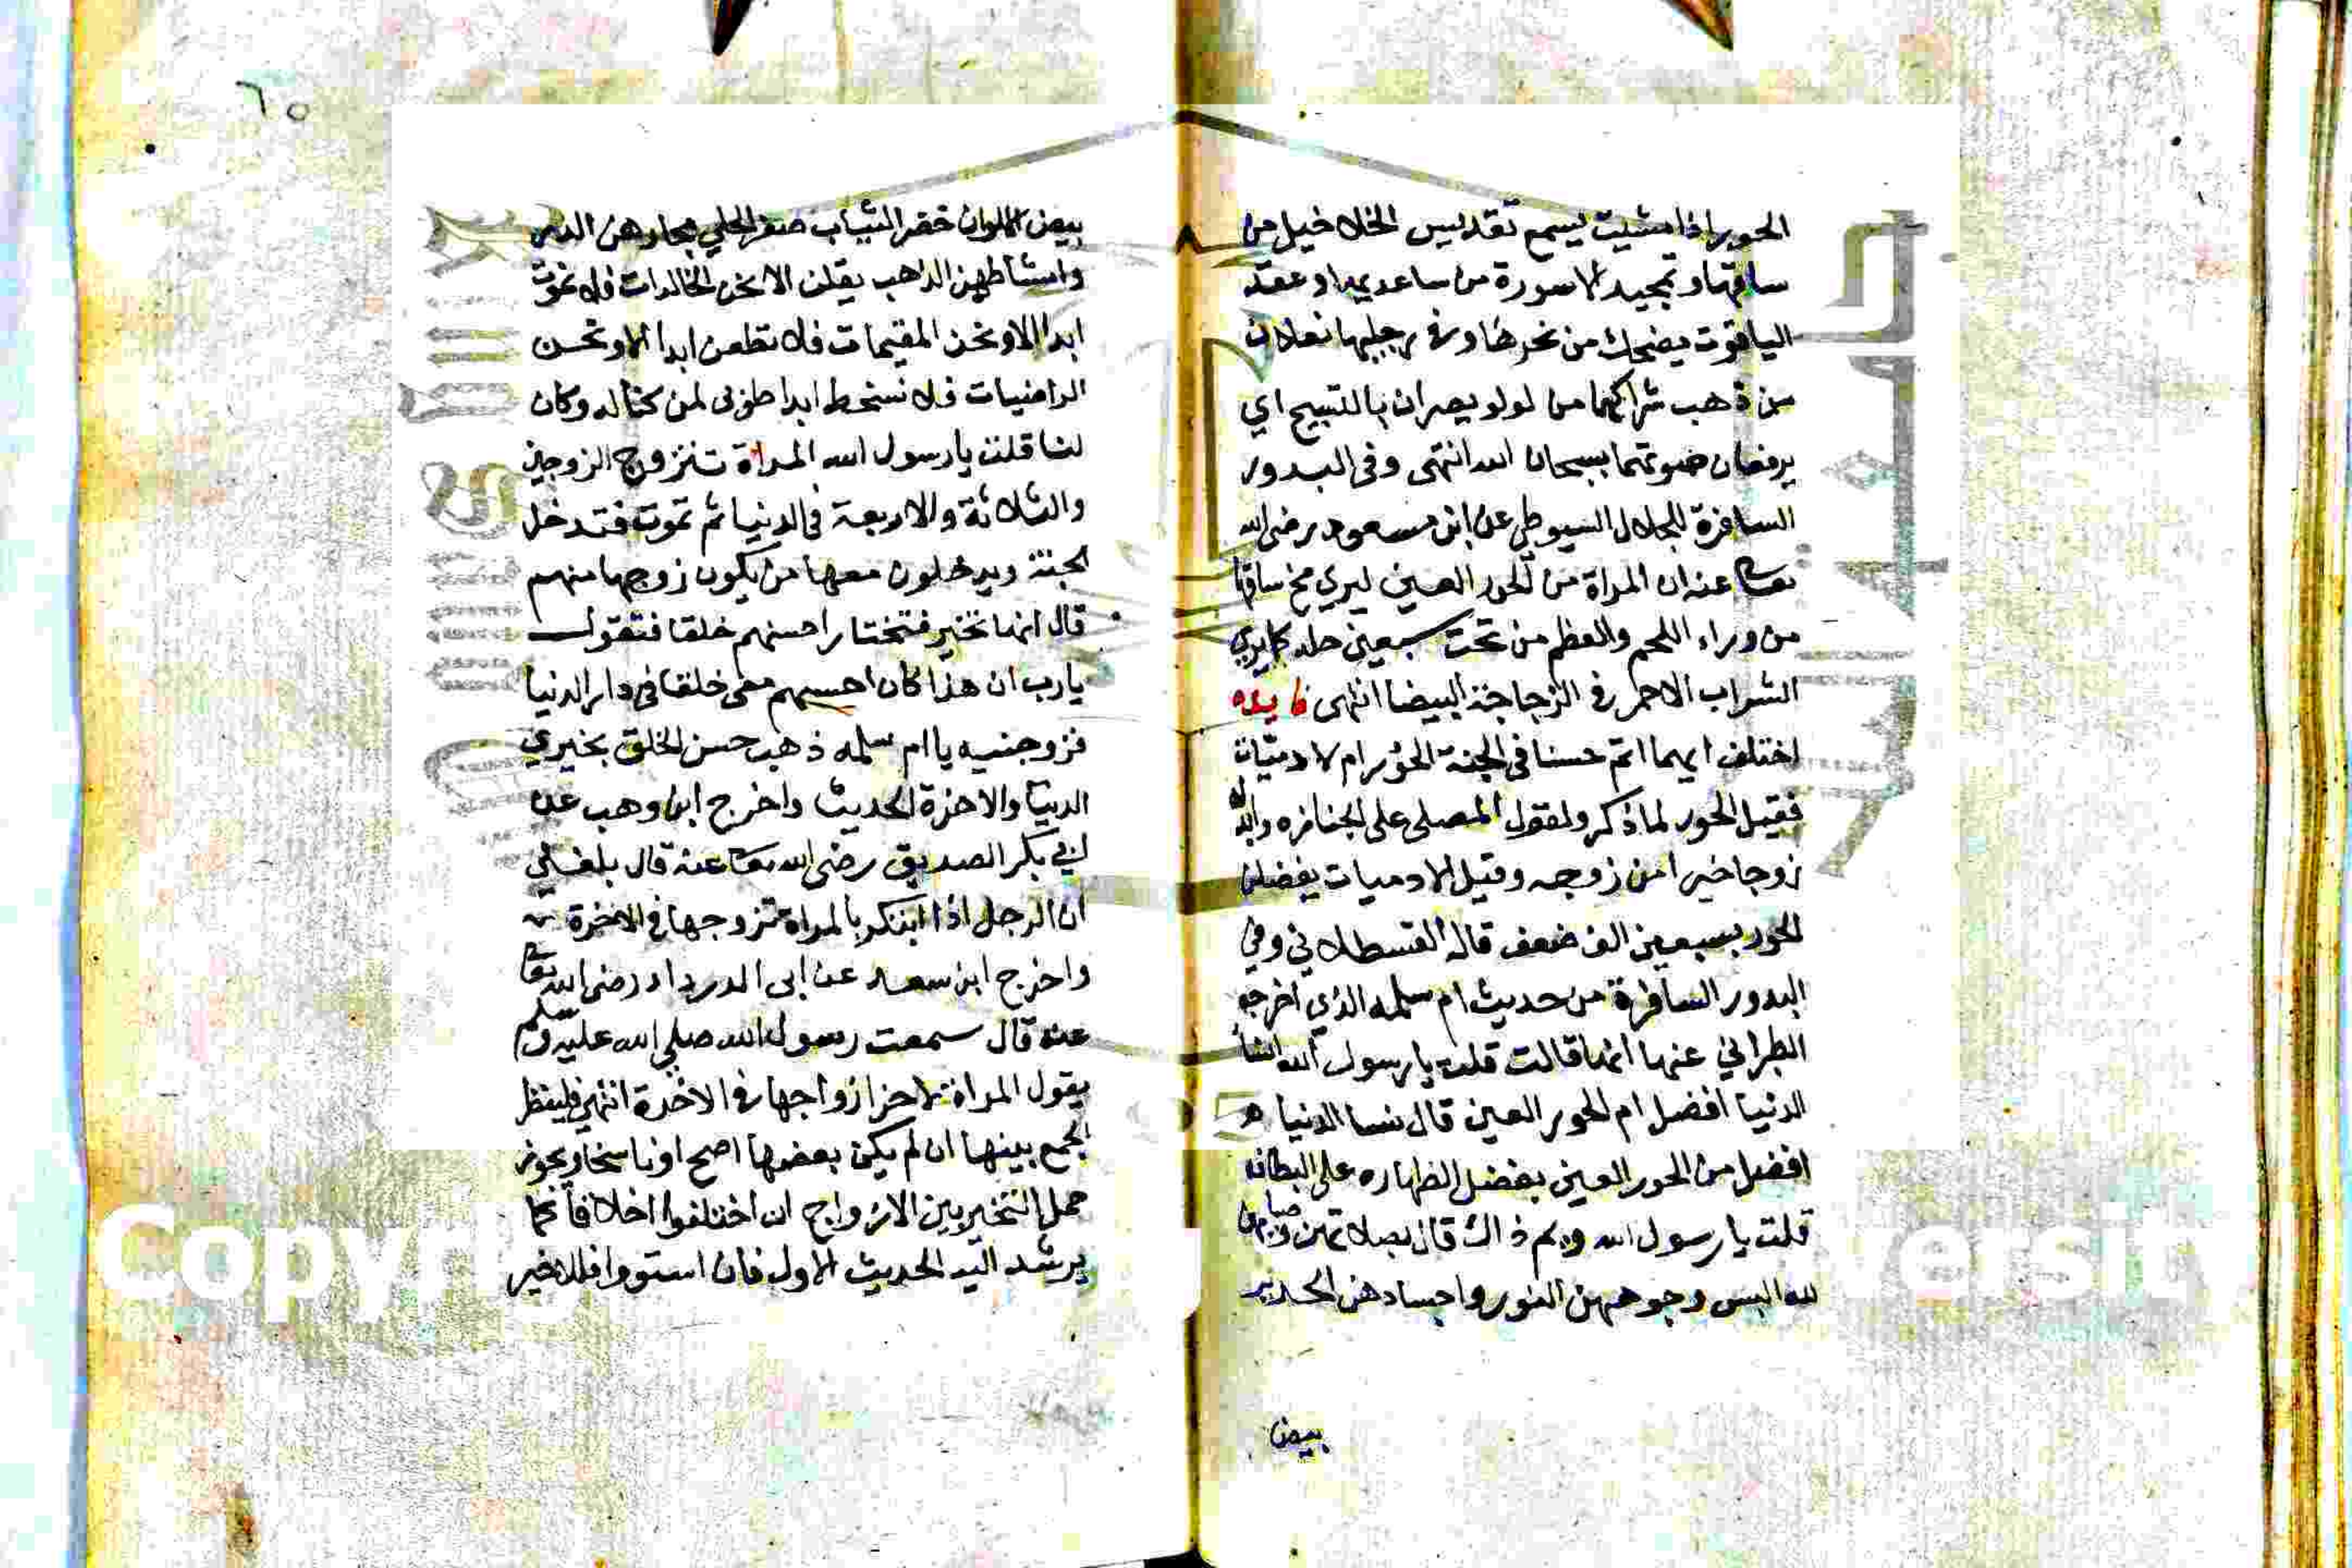 الحور اذا مشيت يسمع تقديس الخلاخيل من
ساقها وتمجيد الاسورة من ساعديها وعقد
الياقوت يضحك من نحرها وفي رجليها نعلان
من ذهب شراكهما من لولو يصران بالتسبيح اي
يرفعان صوتهما بسبحان الله انتهى وفي البدور
السافرة للجلال السيوطي عن ابن مسعود رضي الله
تعالى عنه ان المراة من الحور العين ليري مخ ساقها
من وراء اللحم والعظم من تحت سبعين حله كما يري
الشراب الاحمر في الزجاجة البيضا انتهى فايده
اختلف ايهما اتم حسنا في الجنة الحور ام الادميات
فقيل الحور لما ذكر ولقول المصلي على الجنازه وابدله
زوجا خيرا من زوجه وقيل الادميات يفضلن
الحور بسبعين الف ضعف قاله القسطلاني وفي
البدور السافرة من حديث ام سلمه الذي اخرجه
الطبراني عنها انها قالت قلت يا رسول الله انسا
الدنيا افضل ام الحور العين قال نسا الدنيا
افضل من الحور العين بفضل الظهاره على البطانه
قلت يا رسول الله وبم ذاك قال بصلاتهن وصيامهن
لله البس وجوههن النور واجسادهن الحرير
بيض
٦٥
بيض الالوان خضر الثياب صفر الحلي مجامرهن الدر
وامشاطهن الذهب يقلن الا نحن الخالدات فلا نموت
ابدا الا ونحن المقيمات فلا نظعن ابدا الا ونحن
الراضيات فلا نسخط ابدا طوبى لمن كنا له وكان
لنا قلت يا رسول الله المراة تتزوج الزوجين
والثلاثة والاربعة في الدنيا ثم تموت فتدخل
الجنة ويدخلون معها من يكون زوجها منهم
قال انها تخير فتختار احسنهم خلقا فتقول
يا رب ان هذا كان احسنهم معي خلقا في دار الدنيا
فزوجنيه يا ام سلمه ذهب حسن الخلق بخيري
الدنيا والاخرة الحديث واخرج ابن وهب عن
ابي بكر الصديق رضي الله تعالى عنه قال بلغني
ان الرجل اذا ابتكر بالمراة تزوجها في الاخرة
واخرج ابن سعد عن ابي الدرداء رضي الله تعالى
عنه قال سمعت رسول الله صلي الله عليه وسلم
يقول المراة لاخر ازواجها في الاخرة انتهى فلينظر
الجمع بينها ان لم يكن بعضها اصح او ناسخا ويجوز
حمل التخيير بين الازواج ان اختلفوا اخلاقا كما
يرشد اليه الحديث الاول فان استووا فللاخير